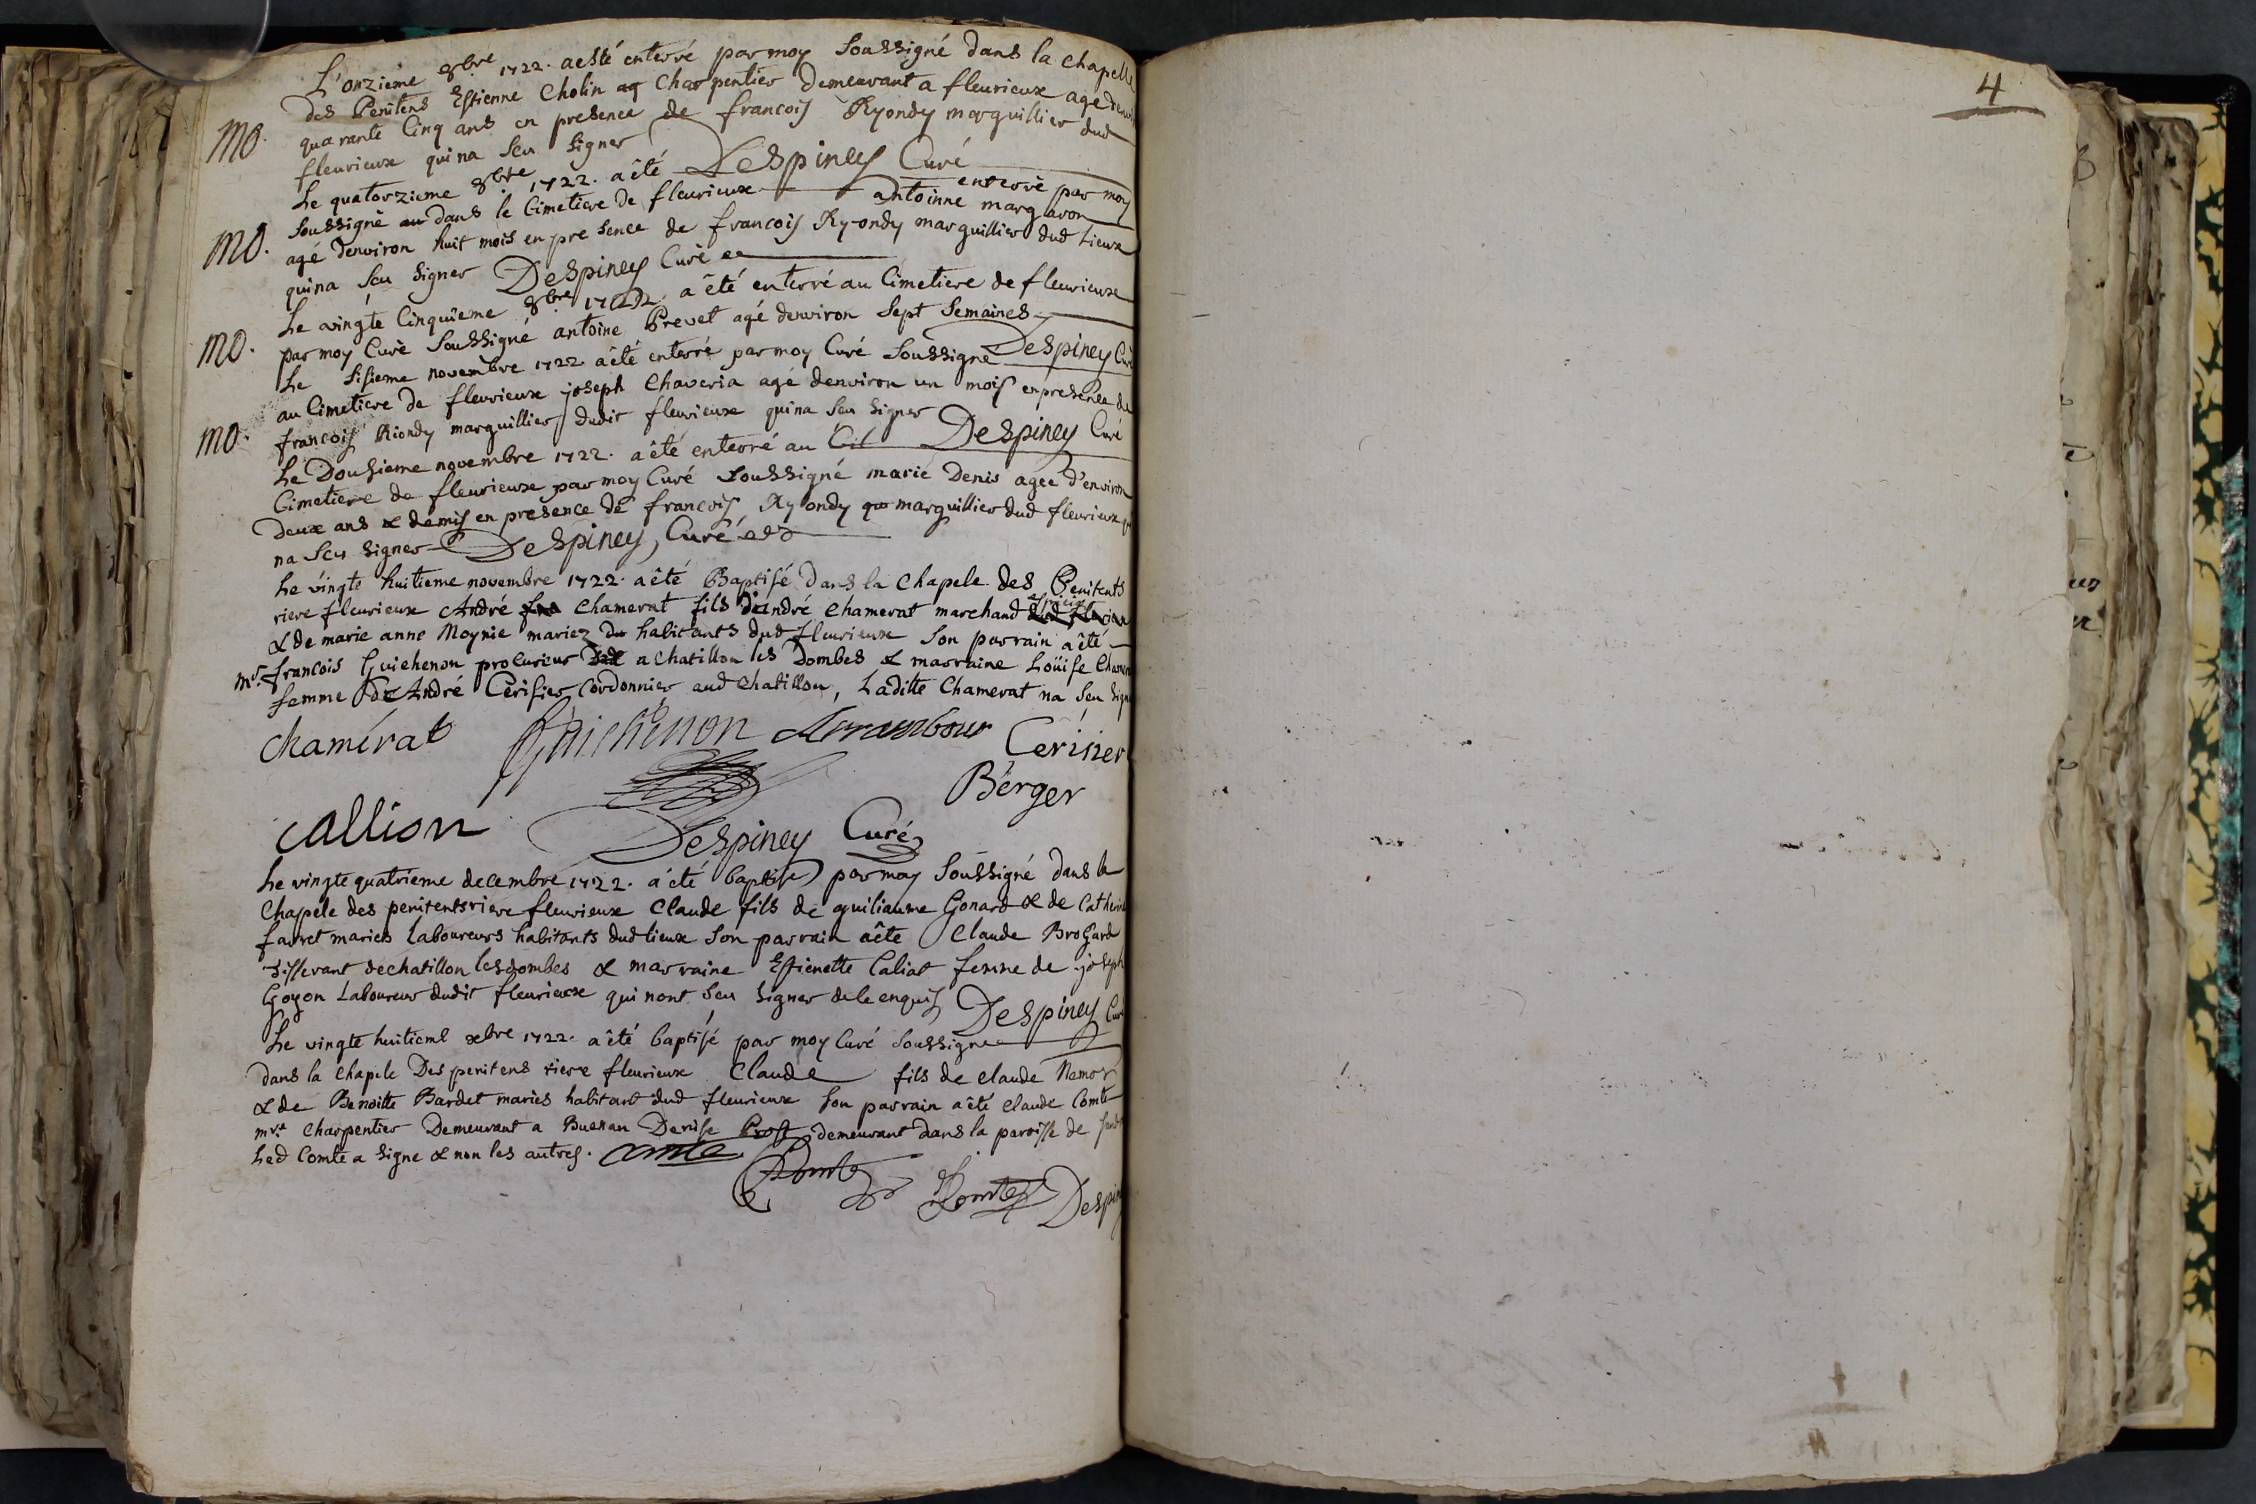 L'onzieme 8bre 1722. aesté enterré par moy Soussigné dans la chapelle
des Penitens Estienne Cholin ag Charpentier Demeurant a fleurieux age
mo. quarante Cinq ans en presence de francois Ryondy marguillier dud
fleurieux quina Seu Signer Despiney Curé
Le quatorzieme 8bre 1722. a êté enterré par moy
Soussigné au dans le Cimetiere De fleurieux antoinne margaron
mo. agé denviron huit mois en presence de francois Ryondy marguillier dud Lieux
quina Seu Signer Despiney Curé
Le vingte Cinquieme 8bre 1722. a êté enterré au Cimetiere de fleurieux
mo. par moy Curé Soussigné antoine Prevet agé denviron Sept Semaines
Despiney Curé
Le Sisieme novembre 1722 aêté enterré par moy Curé Soussigné
au Cimetiere de fleurieux joseph Chaveria agé denviron un mois enpresence de
mo. francois Riondy marguillier dudit fleurieux quina Seu Signer Despiney Curé
Le Dousieme novembre 1722. aêté enterré au Cil
Cimetiere de fleurieux par moy Curé Soussigné marie Denis agee d'environ
Deux ans & demis en presence de francois Ryondy marguillier dud fleurieux qui
na Seu Signer Despiney, Curé
Le vingte huitieme novembre 1722. aêté Baptisé Dans la Chapele des Penitents
riere fleurieux André Chamerat fils d'andré Chamerat marchand
& de marie anne Moynie mariez habitants dud fleurieux Son parrain aêté
mr. francois Guichenon procureur a chatillon les Dombes & marraine Loüise
femme de André Cerisier Cordonnier aud Chatillon, Laditte Chamerat na Seu Signer
chamérat Guichenon Cerisier
Berger
callion Despiney Curé
Le vingte quatrieme decembre 1722. a été baptise par moy Soussigné dans la
Chapele des penitents riere fleurieux Claude fils de guiliaume Gonard & de Catherine
farret mariés Laboureurs habitants dud lieux Son parrain aête Claude Brogard
tisserant de chatillon les dombes & marraine Estienette Caliat femme de joseph
Goyon Laboureur dudit fleurieux qui nont Seu Signer de le enquis Despiney Curé
Le vingte huitieme xbre 1722. a êté baptisé par moy Curé Soussigne
Dans la Chapele Des penitens riere fleurieux Claude fils de claude
& de Benoitte Bardet mariés habitant dud fleurieux Son parrain aêté claude Comte
mre Charpentier Demeurant a Buenan Denise demeurant dans la paroisse de
Led Comte a Signe & non les autres. Comte
Comte Comte Despiney
4